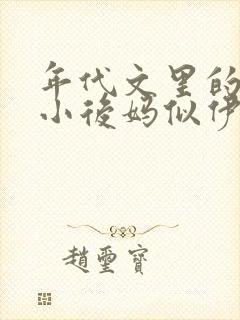 年代文里的
小後妈似伊
趙璽寶